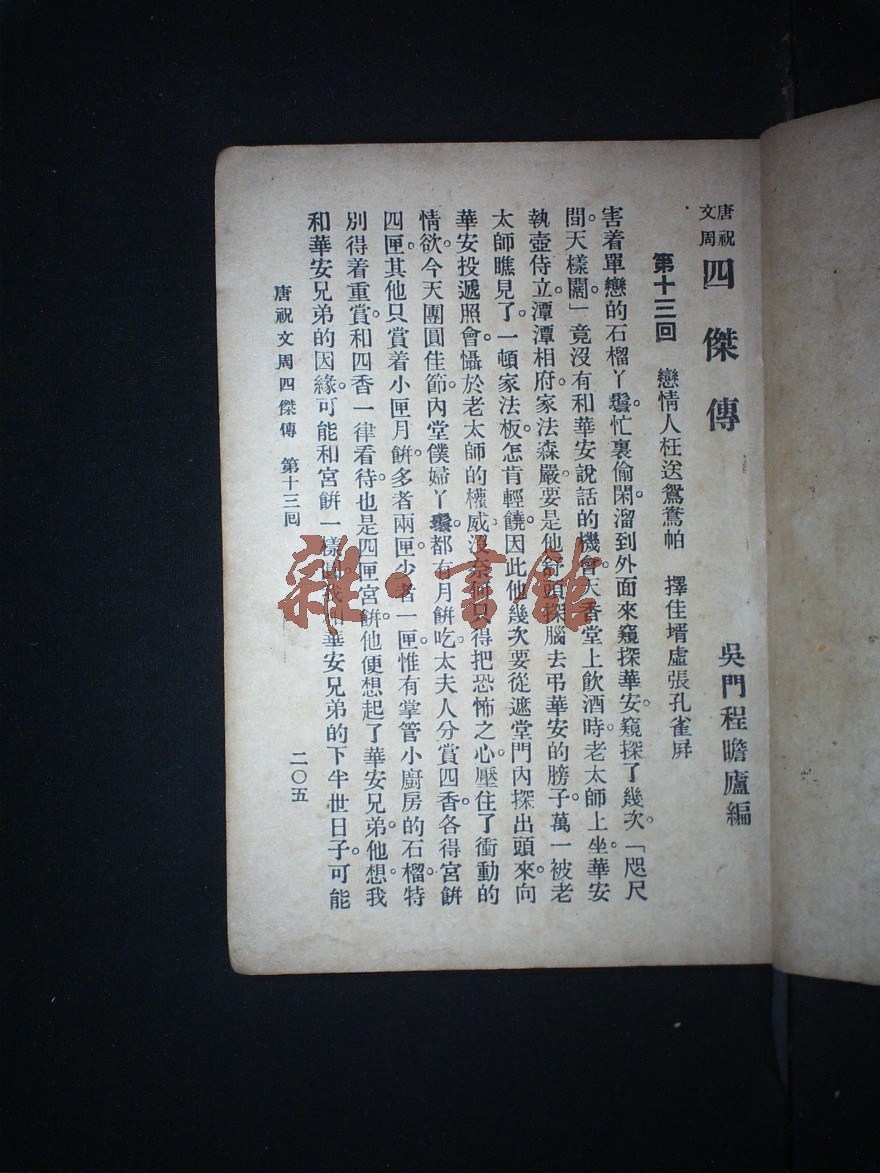 唐祝
文周
四傑傳
吳門程瞻廬編
第十三回　戀情人枉送鴛鴦帕　擇佳壻虛張孔雀屏
害着單戀的石榴丫鬟。忙裏偷閑。溜到外面來窺探華安。窺探了幾次。「咫尺
間。天樣闊。」竟沒有和華安說話的機會。天香堂上飲酒時。老太師上坐。華安
執壺侍立。潭潭相府。家法森嚴。要是他舒頭探腦去弔華安的膀子。萬一被老
太師瞧見了。一頓家法板。怎肯輕饒。因此他幾次要從遮堂門內探出頭來。向
華安投遞照會。懾於老太師的權威。沒奈何只得把恐怖之心。壓住了衝動的
情欲。今天團圓佳節。內堂僕婦丫鬟。都有月餅吃。太夫人分賞四香。各得宮餅
四匣。其他只賞着小匣月餅。多者兩匣。少者一匣。惟有掌管小廚房的石榴。特
別得着重賞。和四香一律看待。也是四匣宮餅。他便想起了華安兄弟。他想。我
和華安兄弟的因緣。可能和宮餅一樣華安兄弟的下半世日子。可能
唐祝文周四傑傳　第十三回
二〇五
雜·書館